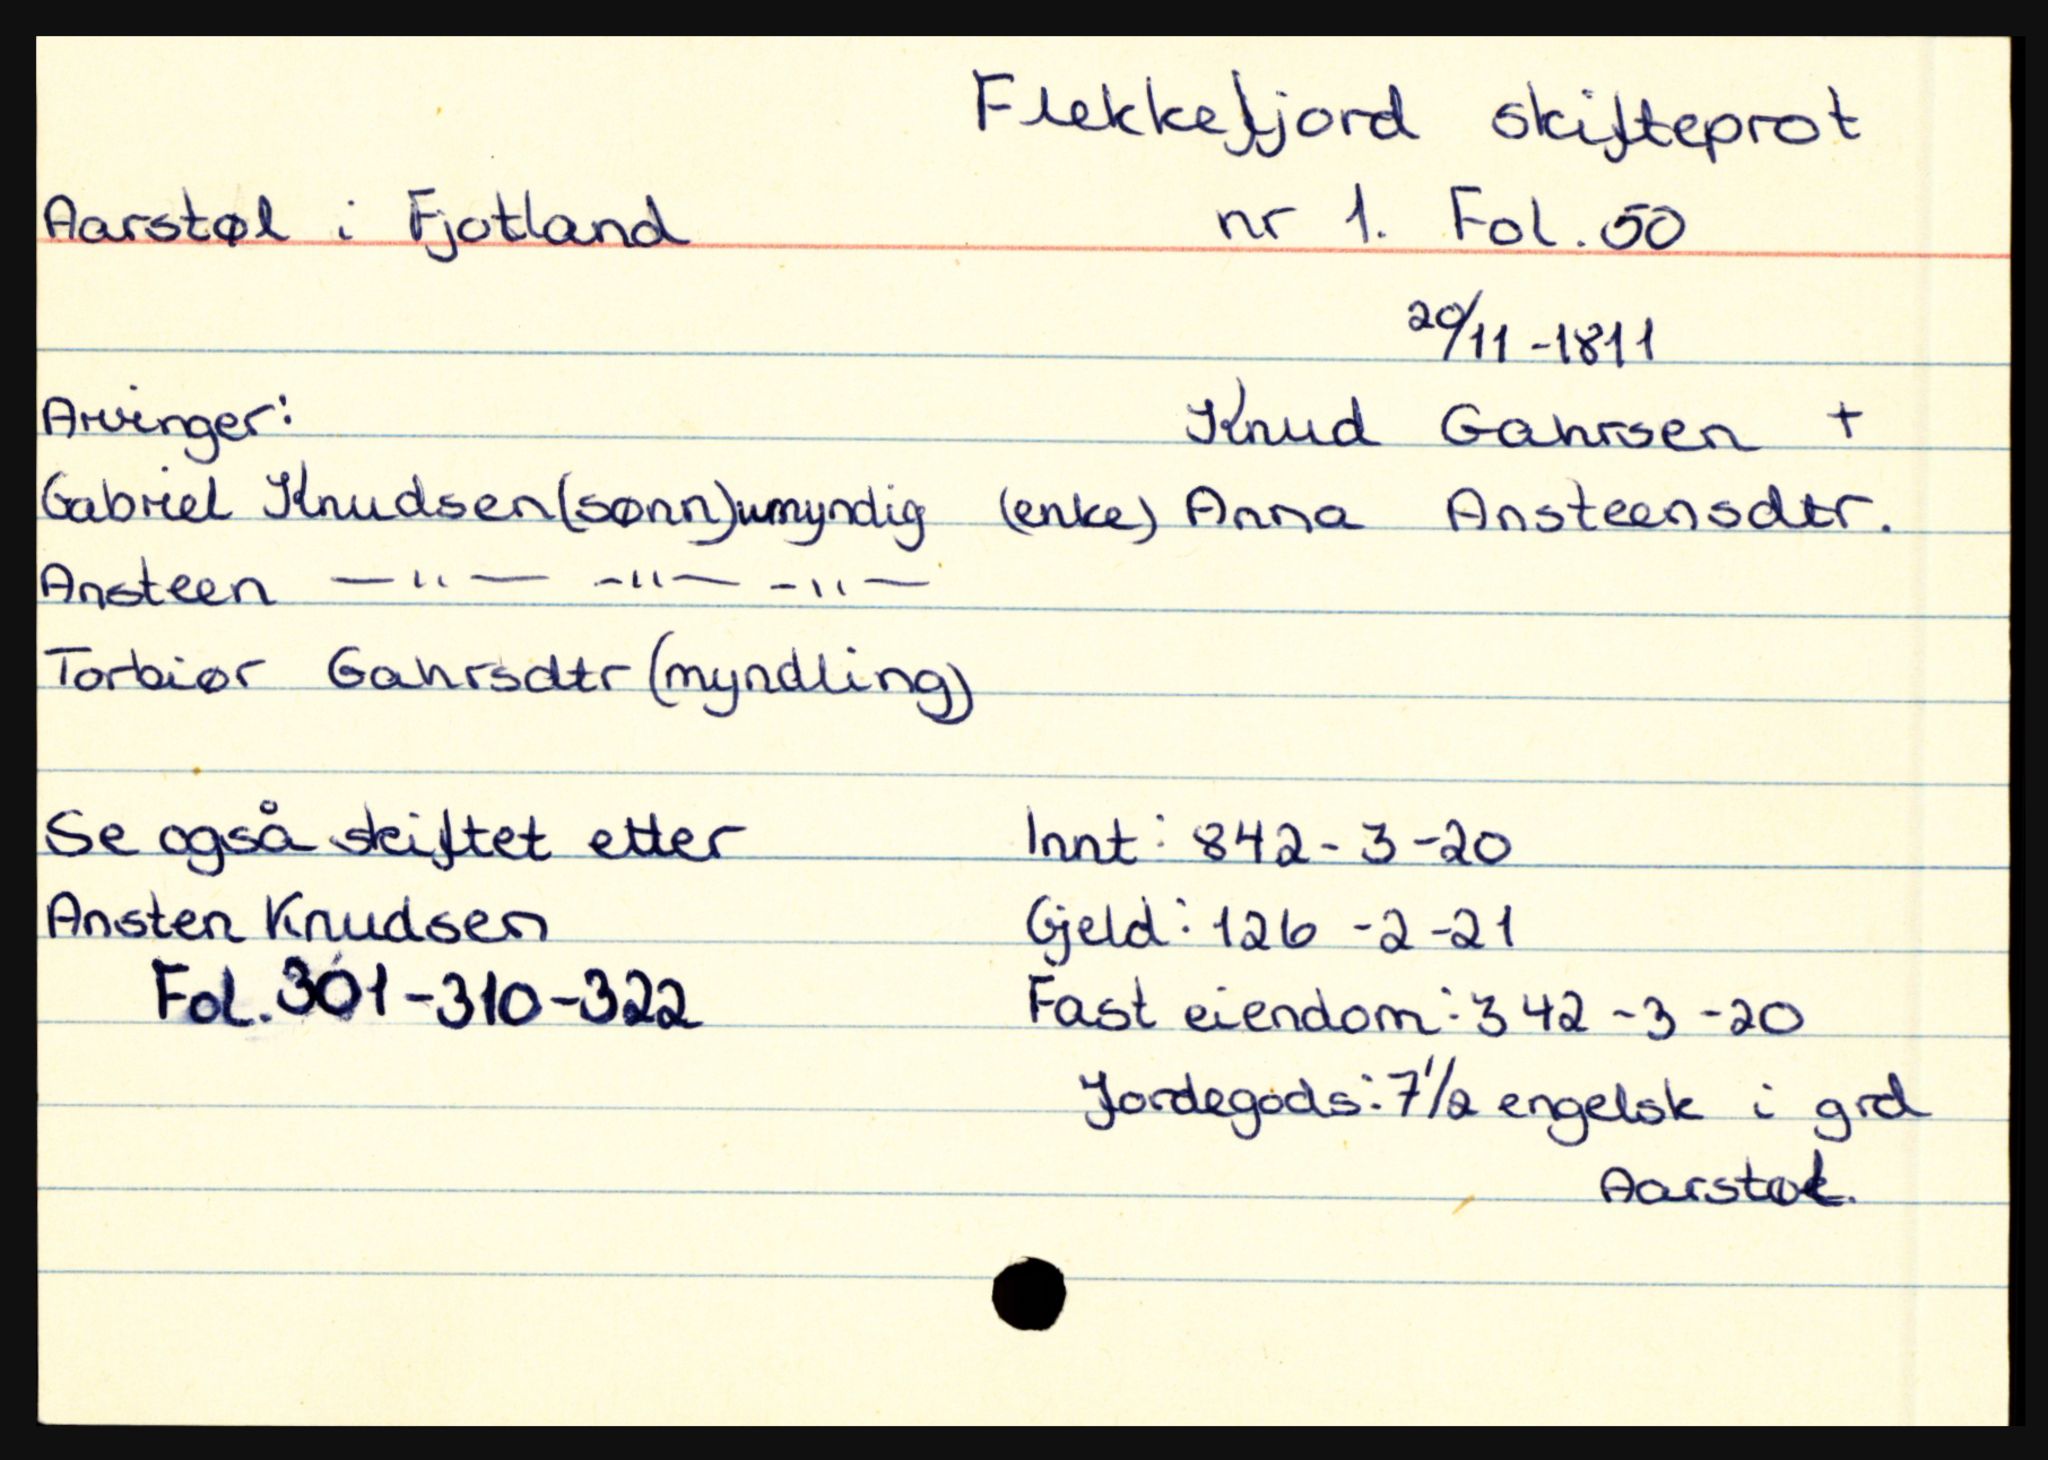 Flekkefjord skifteprot
Aarstøl i Fjotland nr 1. Fol. 50
20/11 - 1811
Arvinger: Knud Gahrsen +
Gabriel Knudsen (sønn) umyndig (enke) Anna Ansteensdtr.
Ansteen —"— —"— —"—
Torbiør Gahrsdtr (myndling)
Se også skiftet etter Innt: 842 - 3 - 20
Ansten Knudsen Gjeld: 126 - 2 - 21
Fol. 301 - 310 - 322 Fast eiendom: 342 - 3 - 20
Jordegods: 7 1/2 engelsk i grd
Aarstøl.